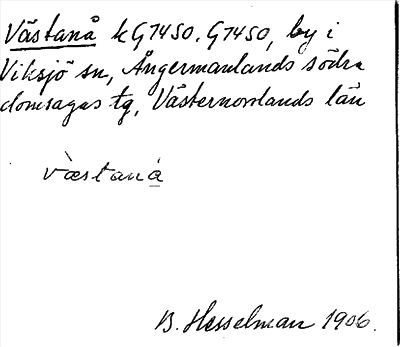 Västanå k G7450. G7450, by i
Viksjö sn, Ångermanlands södra
domsagas tg, Västernorrlands län
væstaná
B. Hesselman 1906.